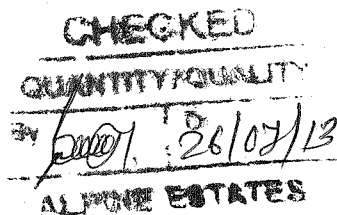 CHECKED
QUANTITY/QUALITY
26/07/13
ALPINE ESTATES